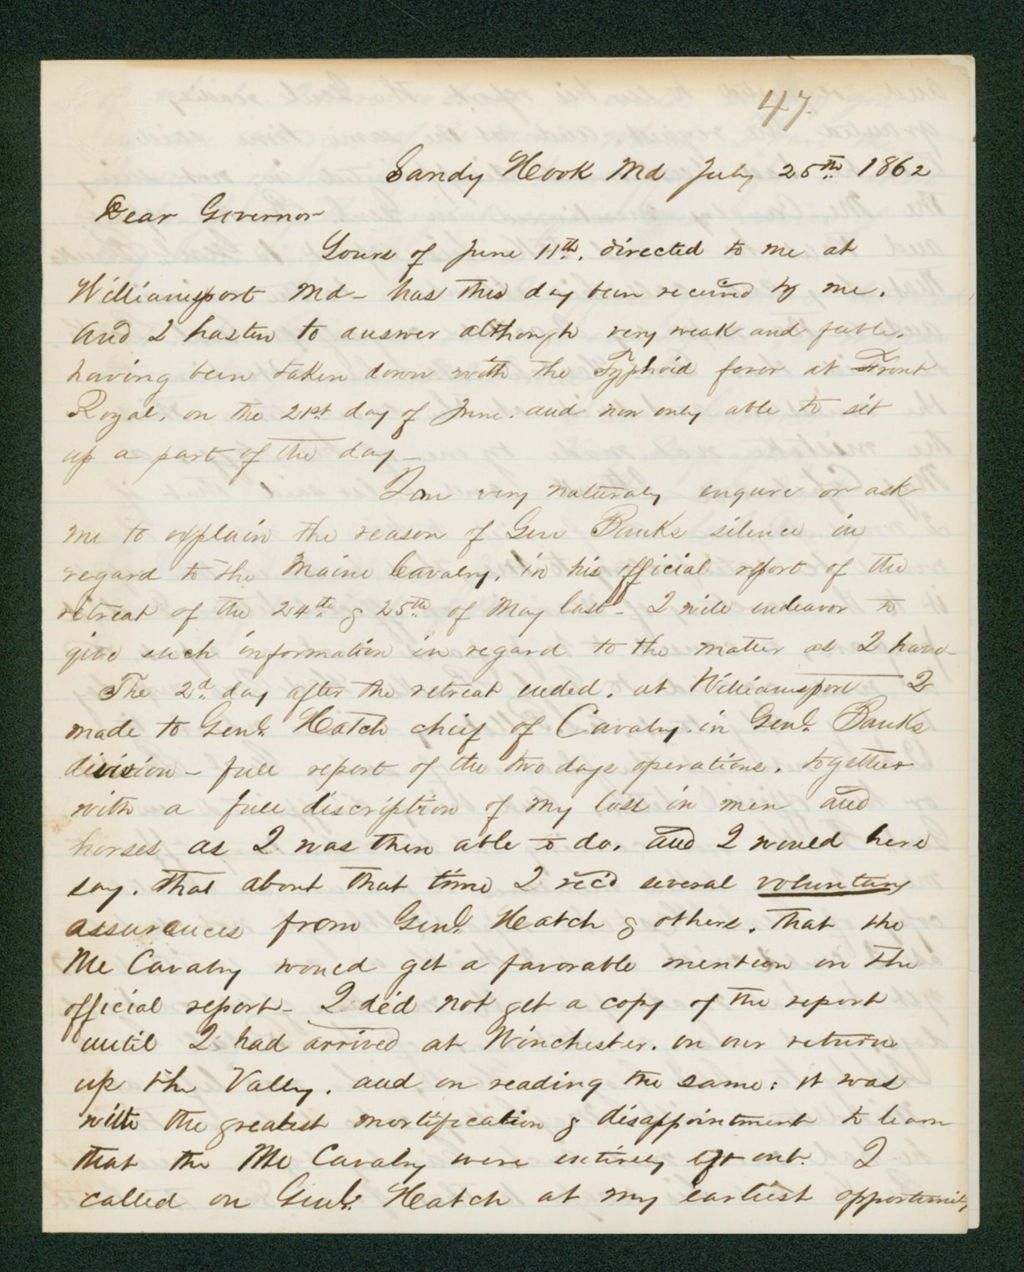 47.
Sandy Hook Md July 25th 1862
Dear Governor
Yours of June 11th. directed to me at
Williamsport Md - has this day been received by me.
And I hasten to answer although very weak and feble.
having been taken down with the Typhoid fever at Front
Royal, on the 21st day of June. and now only able to sit
up a part of the day -
You very naturaly enquire or ask
me to explain the reason of Gen Banks silence in
regard to the Maine Cavalry, in his official report of the
retreat of the 24th & 25th of May last - I will endeavor to
give such information in regard to the matter as I have -
The 2d day after the retreat ended, at Williamsport I
made to Genl. Hatch chief of Cavalry in Genl. Banks
division - full report of the two days operations, together
with a full discription of my loss in men and
horses as I was then able to do, and I would here
say, that about that time I rec'd several voluntary
assurances from Genl. Hatch & others, that the
Me Cavalry would get a favorable mention in the
official report - I did not get a copy of the report
until I had arrived at Winchester, on our return
up the Vally, and on reading the same; it was
with the greatest mortification & disappointment to learn
that the Me Cavalry were entirely left out. I
called on Genl. Hatch at my earliest opportunity